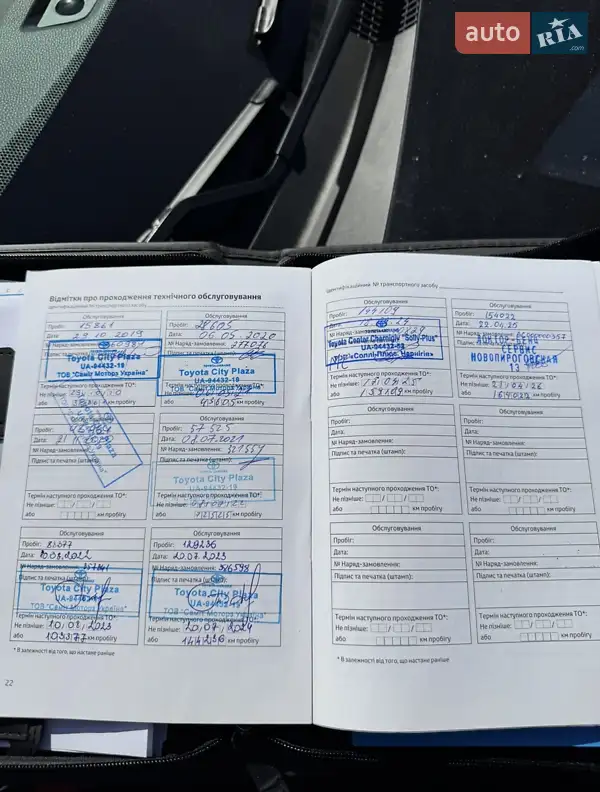 auto RIA .com
Відмітки про проходження технічного обслуговування
ідентифікаційний № транспортного засобу
Обслуговування
Пробіг: 15861
Дата: 29 10 2019
№ Наряд-замовлення:
Toyota City Plaza
UA-04432-19
ТОВ "Світ Мотора Україна"
Термін наступного проходження ТО*:
Не пізніше:
або км пробігу
Обслуговування
Пробіг: 28605
Дата: 06.05.2020
№ Наряд-замовлення:
Toyota City Plaza
UA-04432-19
ТОВ "Світ Мотора Україна"
Термін наступного проходження ТО*:
Не пізніше:
або 43605 км пробігу
Обслуговування
Пробіг:
Дата:
№ Наряд-замовлення:
Підпис та печатка (штамп):
Термін наступного проходження ТО*:
Не пізніше:
або км пробігу
Обслуговування
Пробіг: 57525
Дата: 08.07.2021
№ Наряд-замовлення: 321551
Підпис та печатка (штамп):
Toyota City Plaza
UA-04432-19
Термін наступного проходження ТО*:
Не пізніше:
або км пробігу
Обслуговування
Пробіг: 83377
Дата: 10.08.2022
№ Наряд-замовлення:
Підпис та печатка (штамп):
Toyota City Plaza
UA-04432-19
ТОВ "Світ Мотора Україна"
Термін наступного проходження ТО*:
Не пізніше: 10/08/2023
або 103377 км пробігу
Обслуговування
Пробіг: 129236
Дата: 20.07.2023
№ Наряд-замовлення: 376598
Підпис та печатка (штамп):
Toyota City Plaza
UA-04432-19
ТОВ "Світ Мотора Україна"
Термін наступного проходження ТО*:
Не пізніше: 20/07/2024
або 144236 км пробігу
* В залежності від того, що настане раніше
22
ідентифікаційний № транспортного засобу
Обслуговування
Пробіг: 144109
Дата:
№ Наряд-замовлення:
Toyota Center Chernigiv "Solly-Plus"
Термін наступного проходження ТО*:
Не пізніше:
або 159109 км пробігу
Обслуговування
Пробіг: 154022
Дата: 22.04.25
№ Наряд-замовлення:
СЕРВІС
НОВОПИРОГОВСКАЯ
Термін наступного проходження ТО*:
Не пізніше: 21/04/26
або 164022 км пробігу
Обслуговування
Пробіг:
Дата:
№ Наряд-замовлення:
Підпис та печатка (штамп):
Термін наступного проходження ТО*:
Не пізніше:
або км пробігу
Обслуговування
Пробіг:
Дата:
№ Наряд-замовлення:
Підпис та печатка (штамп):
Термін наступного проходження ТО*:
Не пізніше:
або км пробігу
Обслуговування
Пробіг:
Дата:
№ Наряд-замовлення:
Підпис та печатка (штамп):
Термін наступного проходження ТО*:
Не пізніше:
або км пробігу
Обслуговування
Пробіг:
Дата:
№ Наряд-замовлення:
Підпис та печатка (штамп):
Термін наступного проходження ТО*:
Не пізніше:
або км пробігу
* В залежності від того, що настане раніше